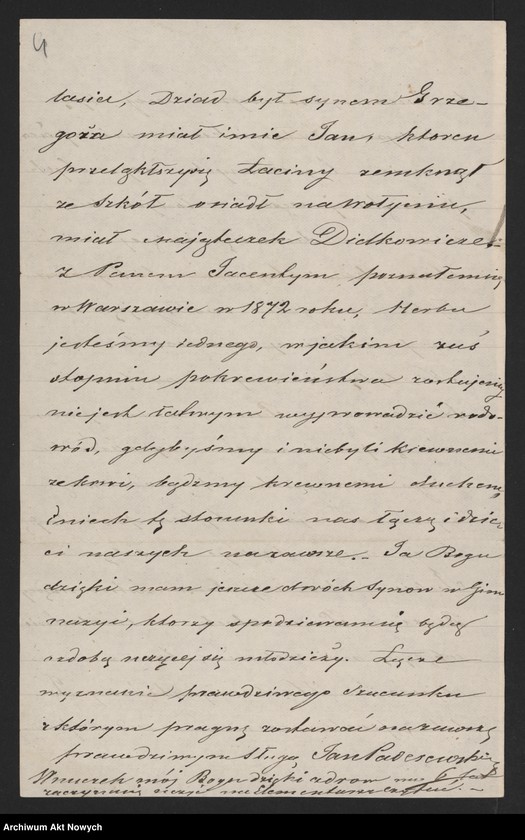 4
tasia, Dziad był synem Grze-
goża miał imie Jan, ktoren
przelękłszysię Łaciny zemknął
ze Szkół osiadł na Wołyniu,
miał Mająteczek Didkowicze.-
Z Panem Jacentym poznałemsię
w Warszawie w 1872 roku, Herbu
jesteśmy iednego, w jakim zaś
stopniu pokrewieństwa zostajemy
nie jest łatwym wyprowadzić rodo-
wód, gdybyśmy i niebyli krewnemi
ze krwi, bądzmy krewnemi duchem,
Zniech tę stosunki nas łączą i dzie
ci naszych nazawsze.- Ja Bogu
dzięki mam jeszcze dwóch Synow w Gim
nazyi, ktorzy spodziewamsię będą
ozdobą uczącej się młodzieży. Łącze
wyznanie prawdziwego Szacunku
z którym pragnę zostawać nazawsze
prawdziwym Sługą Jan Paderewski
Wnuczek mój Bogu dzięki zdrow ma 6 lat
zaczyna